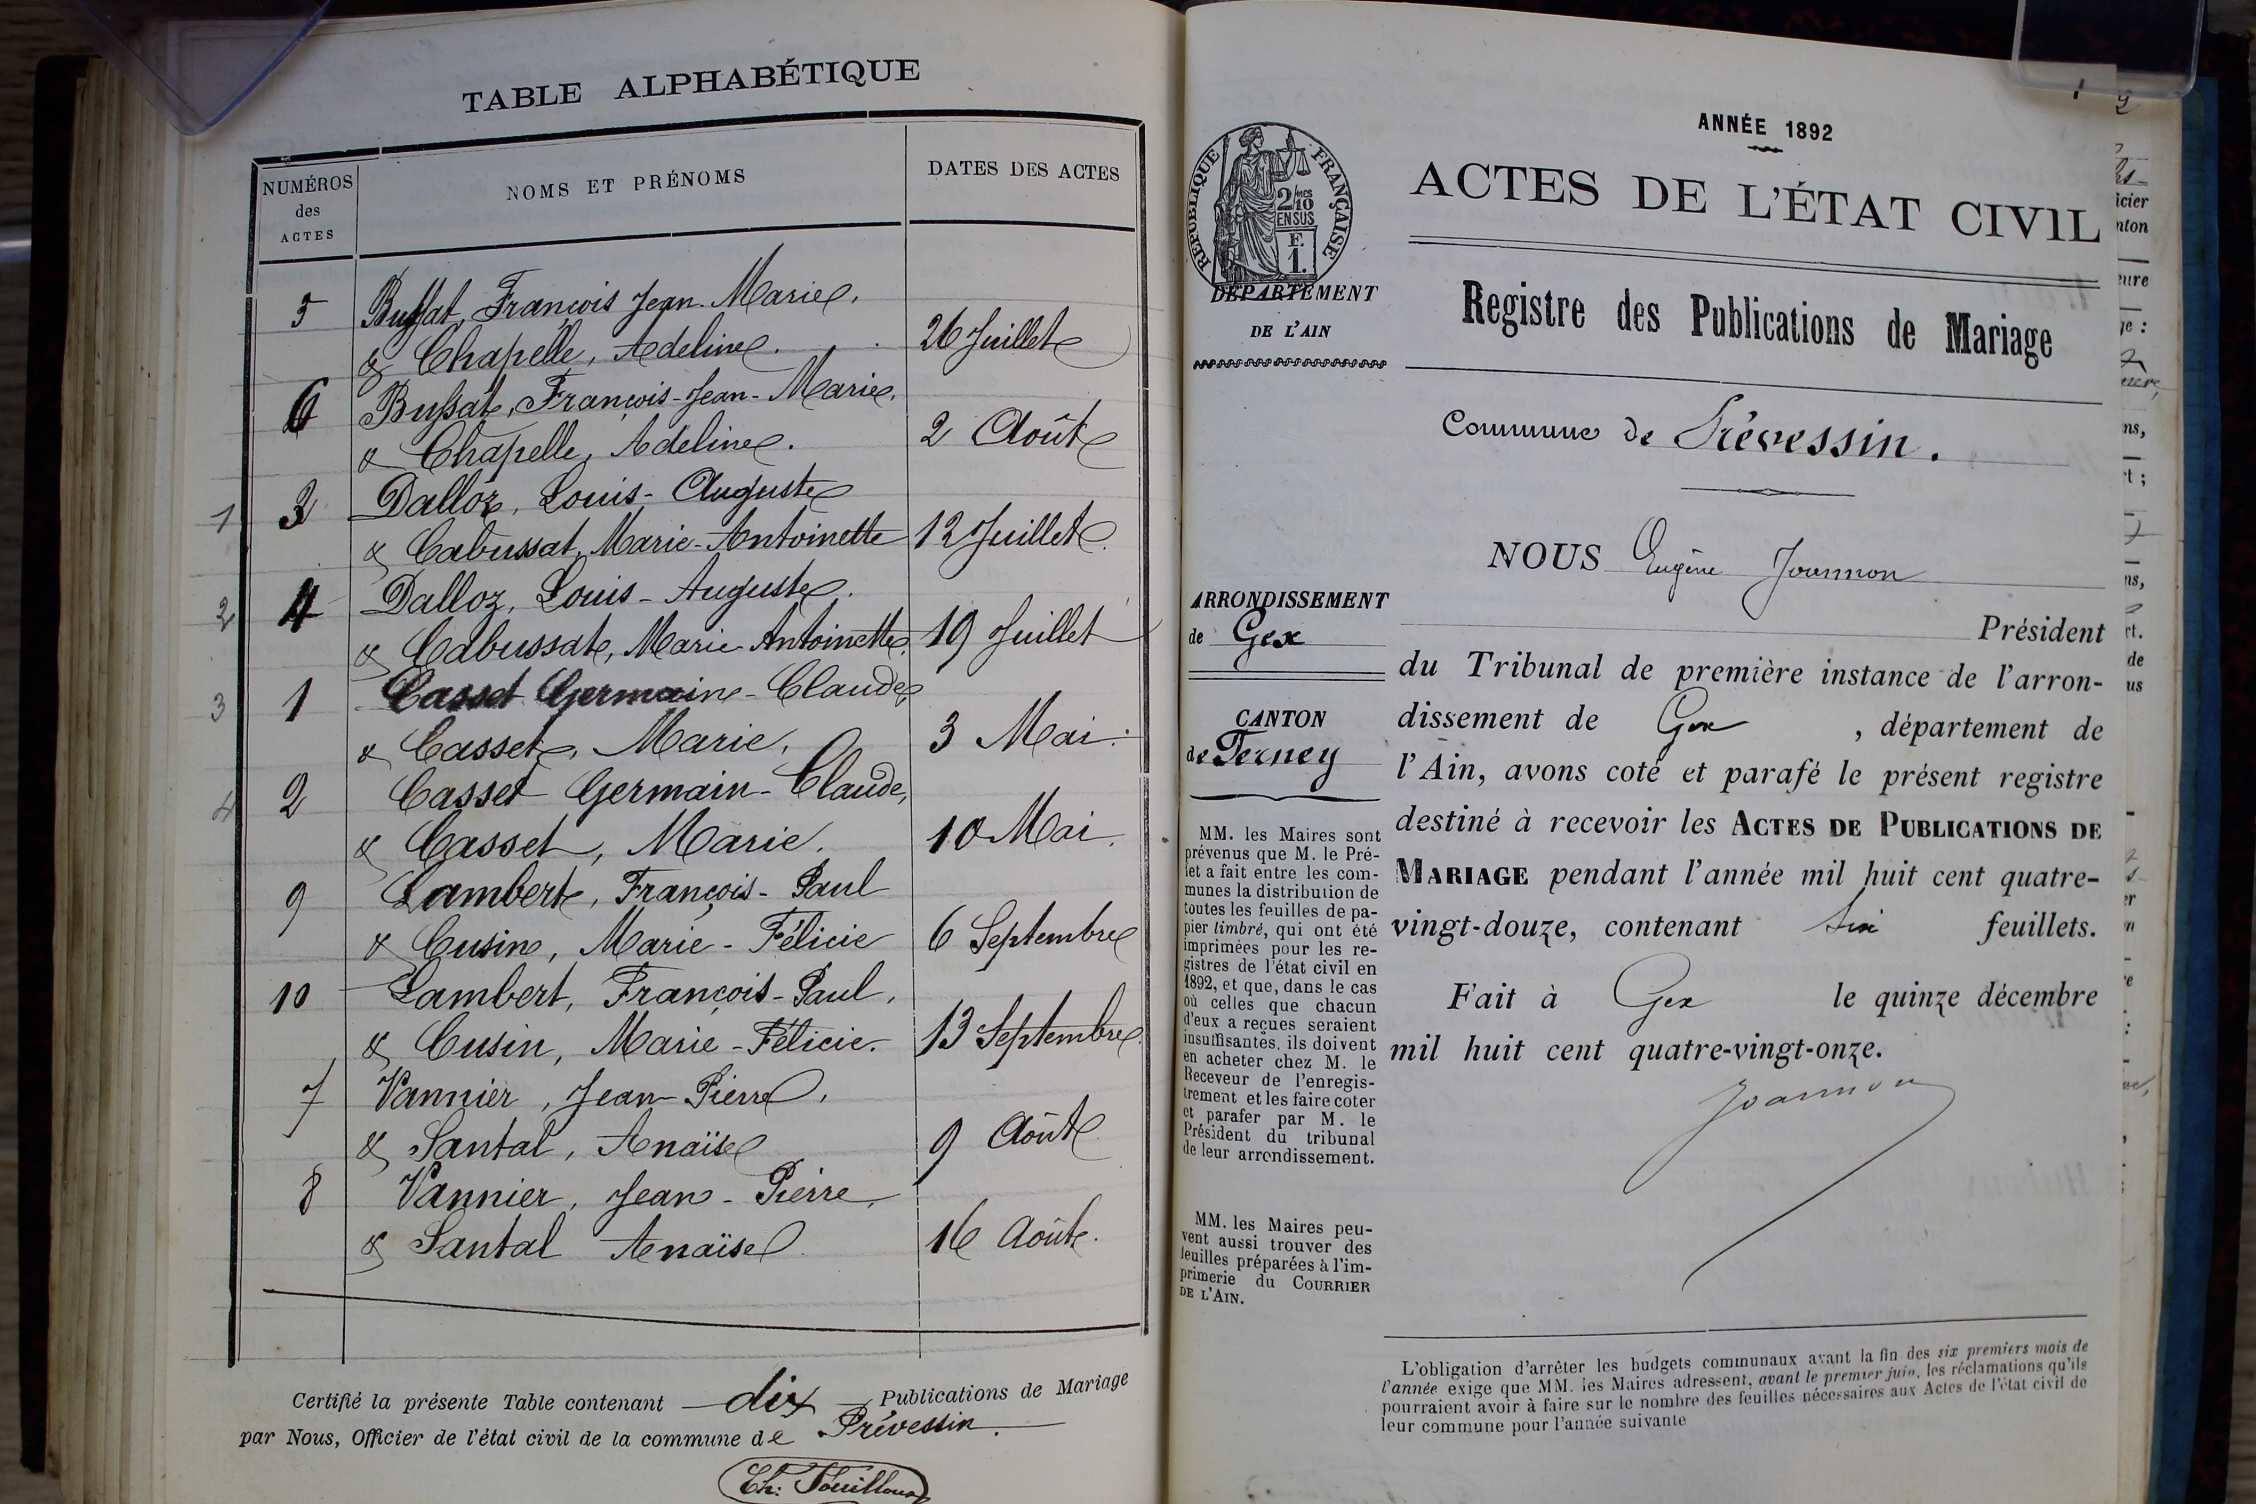 TABLE ALPHABÉTIQUE
NUMÉROS
des
ACTES
NOMS ET PRÉNOMS
DATES DES ACTES
5 Bussat, François Jean-Marie,
& Chapelle, Adeline. 26 Juillet
6 Bussat, François-Jean-Marie,
& Chapelle, Adeline. 2 Août
1 3 Dalloz, Louis-Auguste
& Cabussat, Marie-Antoinette 12 Juillet
2 4 Dalloz, Louis-Auguste.
& Cabussat, Marie-Antoinette. 19 Juillet
3 1 Casset Germain-Claude,
& Casset, Marie, 3 Mai.
4 2 Casset Germain-Claude,
& Casset, Marie. 10 Mai.
9 Lambert, François-Paul
& Cusin, Marie-Félicie 6 Septembre
10 Lambert, François-Paul,
& Cusin, Marie-Félicie. 13 Septembre
7 Vannier, Jean-Pierre,
& Santal, Anaïse 9 Août
8 Vannier, Jean-Pierre,
& Santal Anaïse 16 Août.
Certifié la présente Table contenant dix Publications de Mariage
par Nous, Officier de l'état civil de la commune de Prévessin.
Ch:
1
ANNÉE 1892
ACTES DE L'ÉTAT CIVIL
Registre des Publications de Mariage
Commune de Prévessin.
RÉPUBLIQUE FRANÇAISE
2/10 MES
EN SUS
F.
1.
DÉPARTEMENT
DE L'AIN
ARRONDISSEMENT
de Gex
CANTON
de Ferney
MM. les Maires sont
prévenus que M. le Pré-
fet a fait entre les com-
munes la distribution de
toutes les feuilles de pa-
pier timbré, qui ont été
imprimées pour les re-
gistres de l'état civil en
1892, et que, dans le cas
où celles que chacun
d'eux a reçues seraient
insuffisantes, ils doivent
en acheter chez M. le
Receveur de l'enregis-
trement et les faire coter
et parafer par M. le
Président du tribunal
de leur arrondissement.
MM. les Maires peu-
vent aussi trouver des
feuilles préparées à l'im-
primerie du COURRIER
DE L'AIN.
NOUS Eugène Joannon
Président
du Tribunal de première instance de l'arron-
dissement de Gex , département de
l'Ain, avons coté et parafé le présent registre
destiné à recevoir les ACTES DE PUBLICATIONS DE
MARIAGE pendant l'année mil huit cent quatre-
vingt-douze, contenant six feuillets.
Fait à Gex le quinze décembre
mil huit cent quatre-vingt-onze.
Joannon
L'obligation d'arrêter les budgets communaux avant la fin des six premiers mois de
l'année exige que MM. les Maires adressent, avant le premier juin, les réclamations qu'ils
pourraient avoir à faire sur le nombre des feuilles nécessaires aux Actes de l'état civil de
leur commune pour l'année suivante